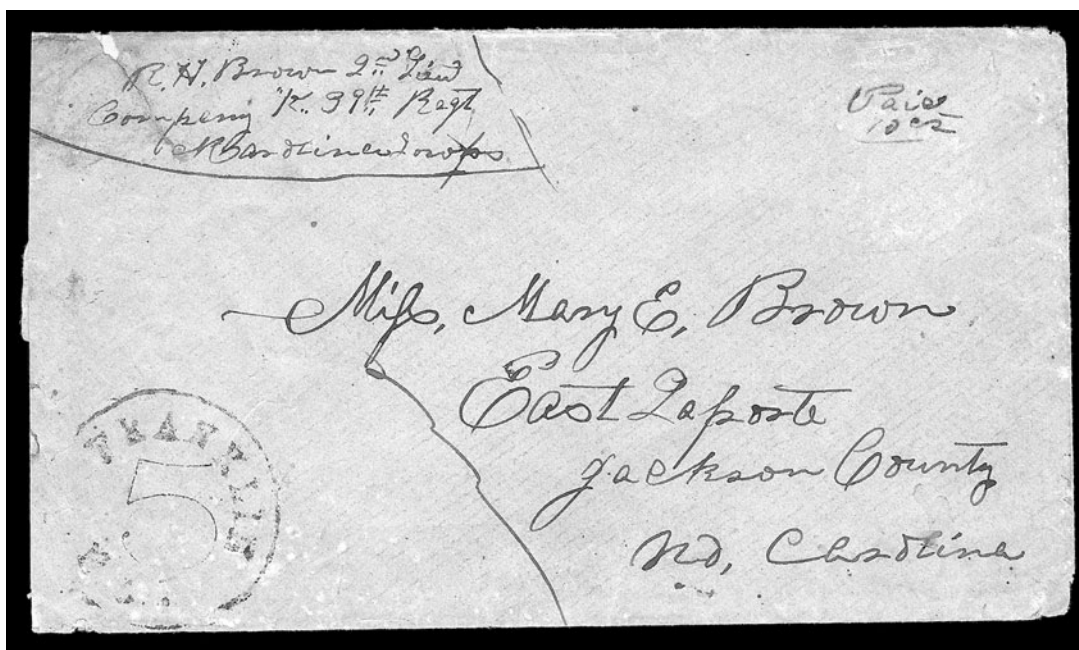 R. H. Brown 2nd Lieut
Company "K" 39th Regt
N Carolina Troops
Paid
10 cts
Miss, Mary E, Brown
East Laporte
Jackson County
No, Carolina
5